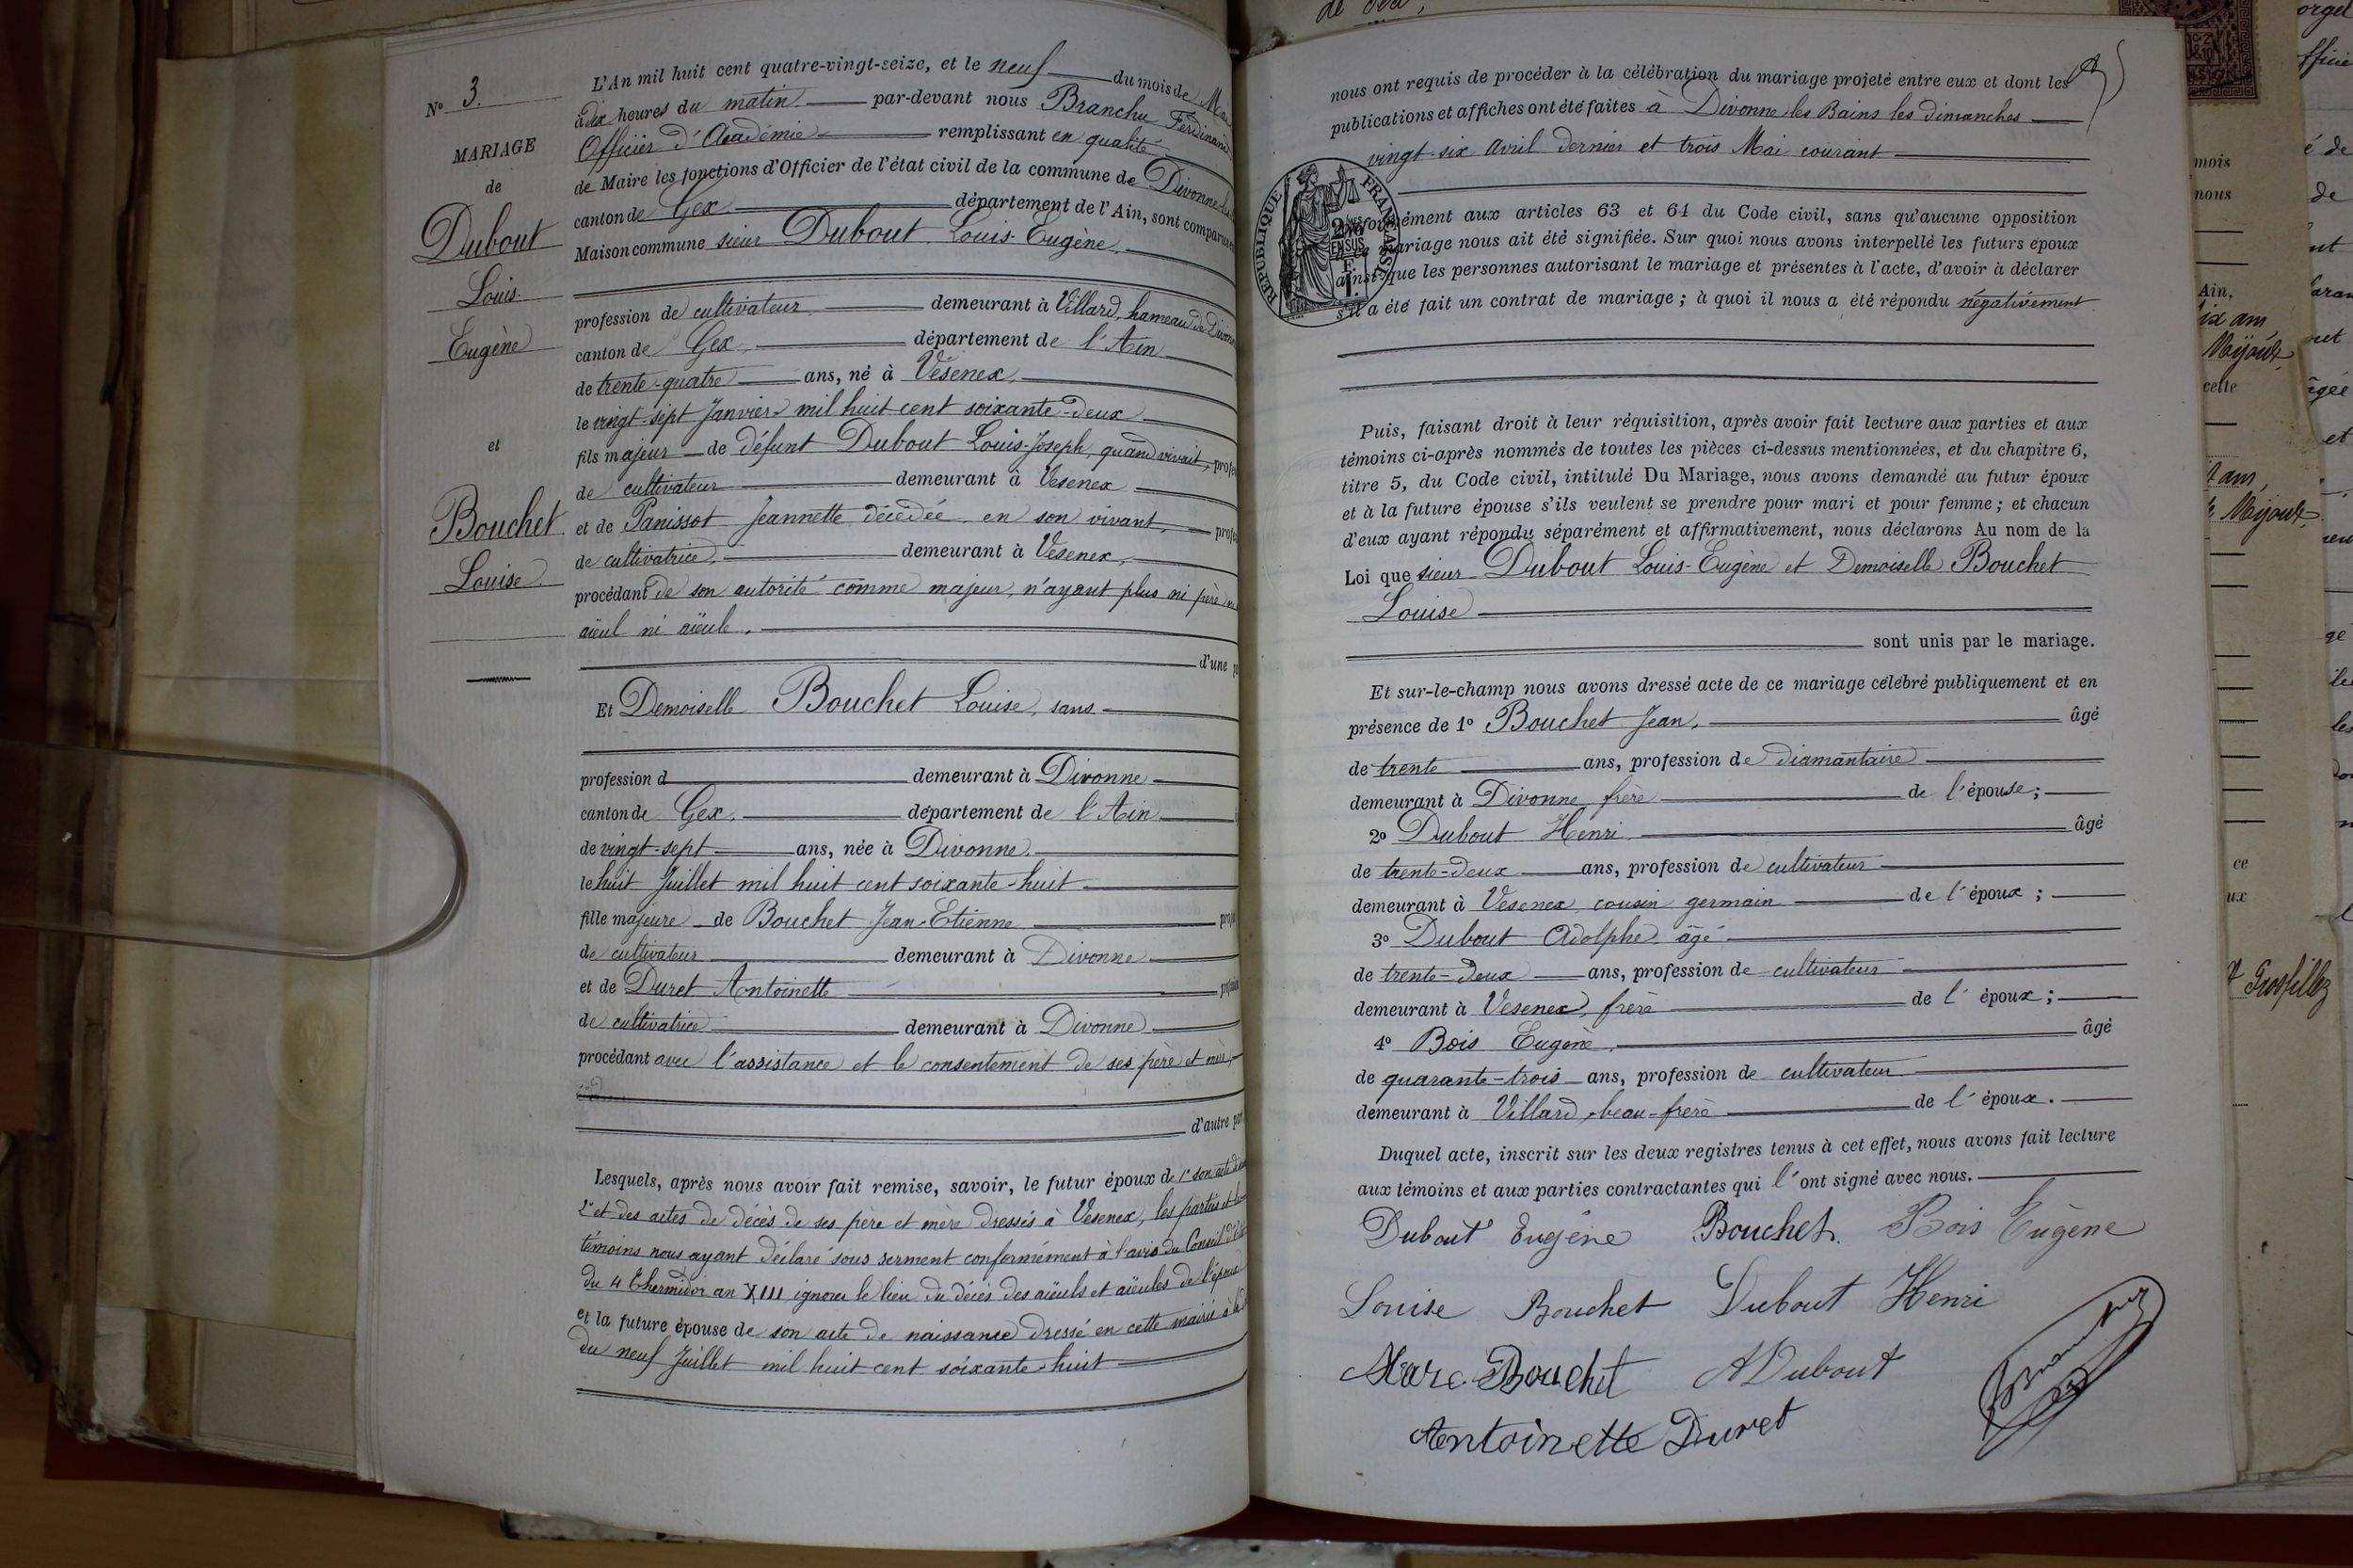 N° 3.
MARIAGE
de
Dubout
Louis
Eugène
et
Bouchet
Louise
L'An mil huit cent quatre-vingt-seize, et le neuf du mois de Mai
à dix heures du matin par-devant nous Branchu Ferdinand
Officier d'Académie remplissant en qualité
de Maire les fonctions d'Officier de l'état civil de la commune de Divonne
canton de Gex département de l'Ain, sont comparus
Maison commune sieur Dubout Louis-Eugène,
profession de cultivateur demeurant à Villard, hameau de Divonne
canton de Gex, département de l'Ain
de trente-quatre ans, né à Vésenex,
le vingt-sept Janvier mil huit cent soixante-deux
fils majeur de défunt Dubout Louis-Joseph, quand vivait,
de cultivateur demeurant à Vesenex
et de Panissot Jeannette décédée en son vivant,
de cultivatrice, demeurant à Vesenex,
procédant de son autorité comme majeur, n'ayant plus ni père
aïeul ni aïeule.
d'une
Et Demoiselle Bouchet Louise, sans
profession d demeurant à Divonne
canton de Gex, département de l'Ain
de vingt-sept ans, née à Divonne,
le huit Juillet mil huit cent soixante-huit
fille majeure de Bouchet Jean-Etienne
de cultivateur demeurant à Divonne
et de Duret Antoinette
de cultivatrice demeurant à Divonne
procédant avec l'assistance et le consentement de ses père et mère,
d'autre part
Lesquels, après nous avoir fait remise, savoir, le futur époux de 1° son acte de
2° et des actes de décès de ses père et mère dressés à Vesenex, les parties et les
témoins nous ayant déclaré sous serment conformément à l'avis du Conseil d'Etat
du 4 Thermidor an XIII ignorer le lieu du décès des aïeuls et aïeules de l'époux
et la future épouse de son acte de naissance dressé en cette mairie à la
du neuf Juillet mil huit cent soixante-huit
nous ont requis de procéder à la célébration du mariage projeté entre eux et dont les
publications et affiches ont été faites à Divonne les Bains les dimanches
vingt-six Avril dernier et trois Mai courant
RÉPUBLIQUE FRANÇAISE
conformément aux articles 63 et 64 du Code civil, sans qu'aucune opposition
à ce mariage nous ait été signifiée. Sur quoi nous avons interpellé les futurs époux
ainsi que les personnes autorisant le mariage et présentes à l'acte, d'avoir à déclarer
s'il a été fait un contrat de mariage ; à quoi il nous a été répondu négativement
Puis, faisant droit à leur réquisition, après avoir fait lecture aux parties et aux
témoins ci-après nommés de toutes les pièces ci-dessus mentionnées, et du chapitre 6,
titre 5, du Code civil, intitulé Du Mariage, nous avons demandé au futur époux
et à la future épouse s'ils veulent se prendre pour mari et pour femme ; et chacun
d'eux ayant répondu séparément et affirmativement, nous déclarons Au nom de la
Loi que sieur Dubout Louis-Eugène et Demoiselle Bouchet
Louise
sont unis par le mariage.
Et sur-le-champ nous avons dressé acte de ce mariage célébré publiquement et en
présence de 1° Bouchet Jean, âgé
de trente ans, profession de diamantaire
demeurant à Divonne frère de l'épouse ;
2° Dubout Henri âgé
de trente-deux ans, profession de cultivateur
demeurant à Vésenex, cousin germain de l'époux ;
3° Dubout Adolphe âgé
de trente-deux ans, profession de cultivateur
demeurant à Vesenex, frère de l'époux ;
4° Bois Eugène, âgé
de quarante-trois ans, profession de cultivateur
demeurant à Villard, beau-frère de l'époux.
Duquel acte, inscrit sur les deux registres tenus à cet effet, nous avons fait lecture
aux témoins et aux parties contractantes qui l'ont signé avec nous.
Dubout Eugène Bouchet Bois Eugène
Louise Bouchet Dubout Henri
Marc Bouchet A Dubout
Antoinette Duret
mois
nous
Ain,
cette
ce